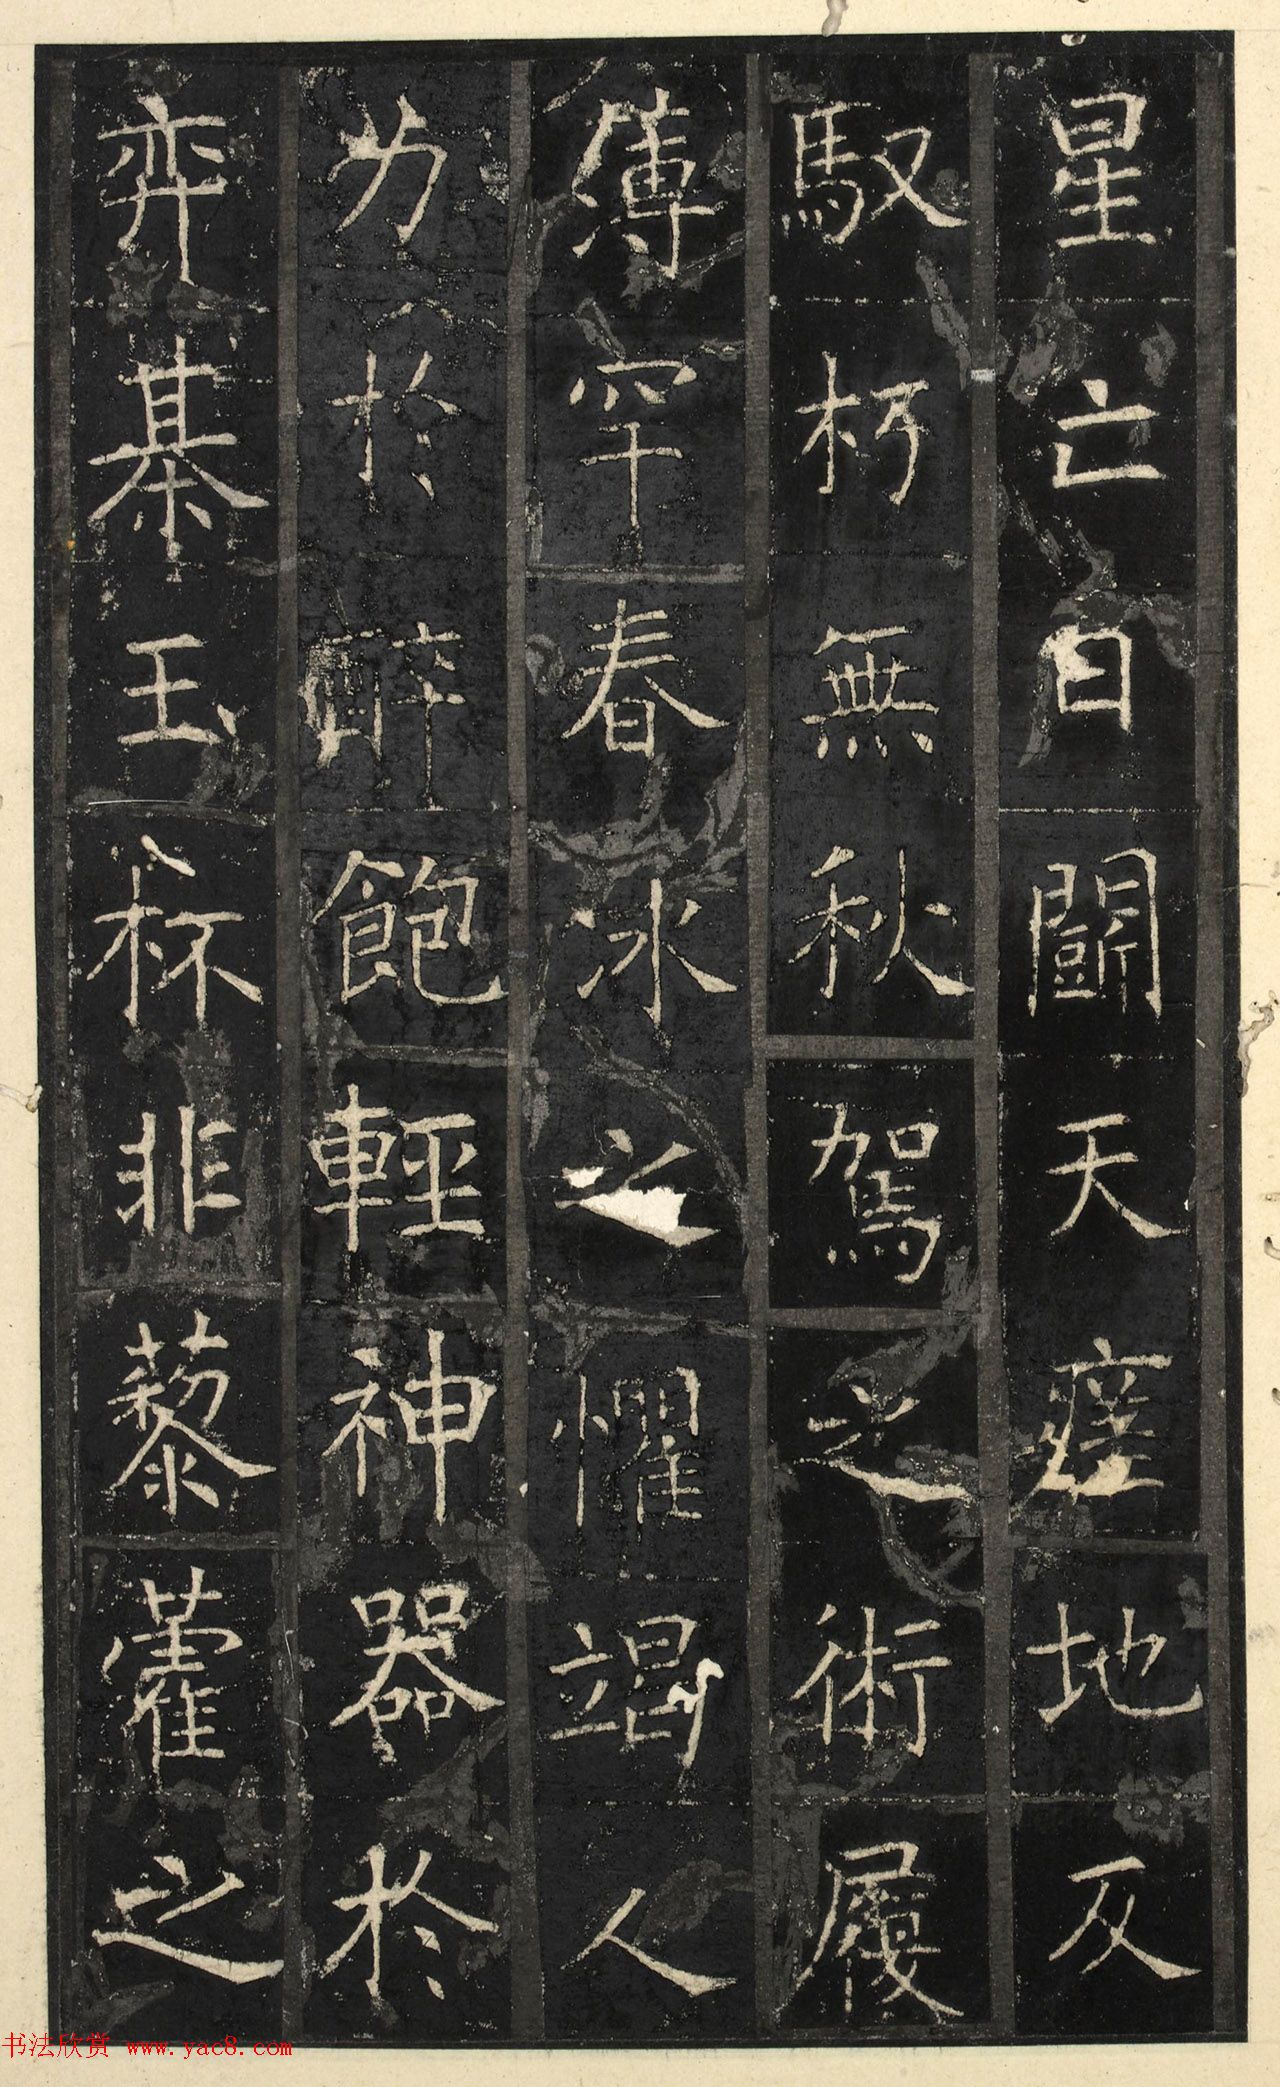 星亡自闢天㾗地及
馭朽無秋駕之術履
薄罕春冰之懼竭人
力於醉飽輕神器於
弈棊玉杯非藜藿之
书法欣赏 www.yac8.com